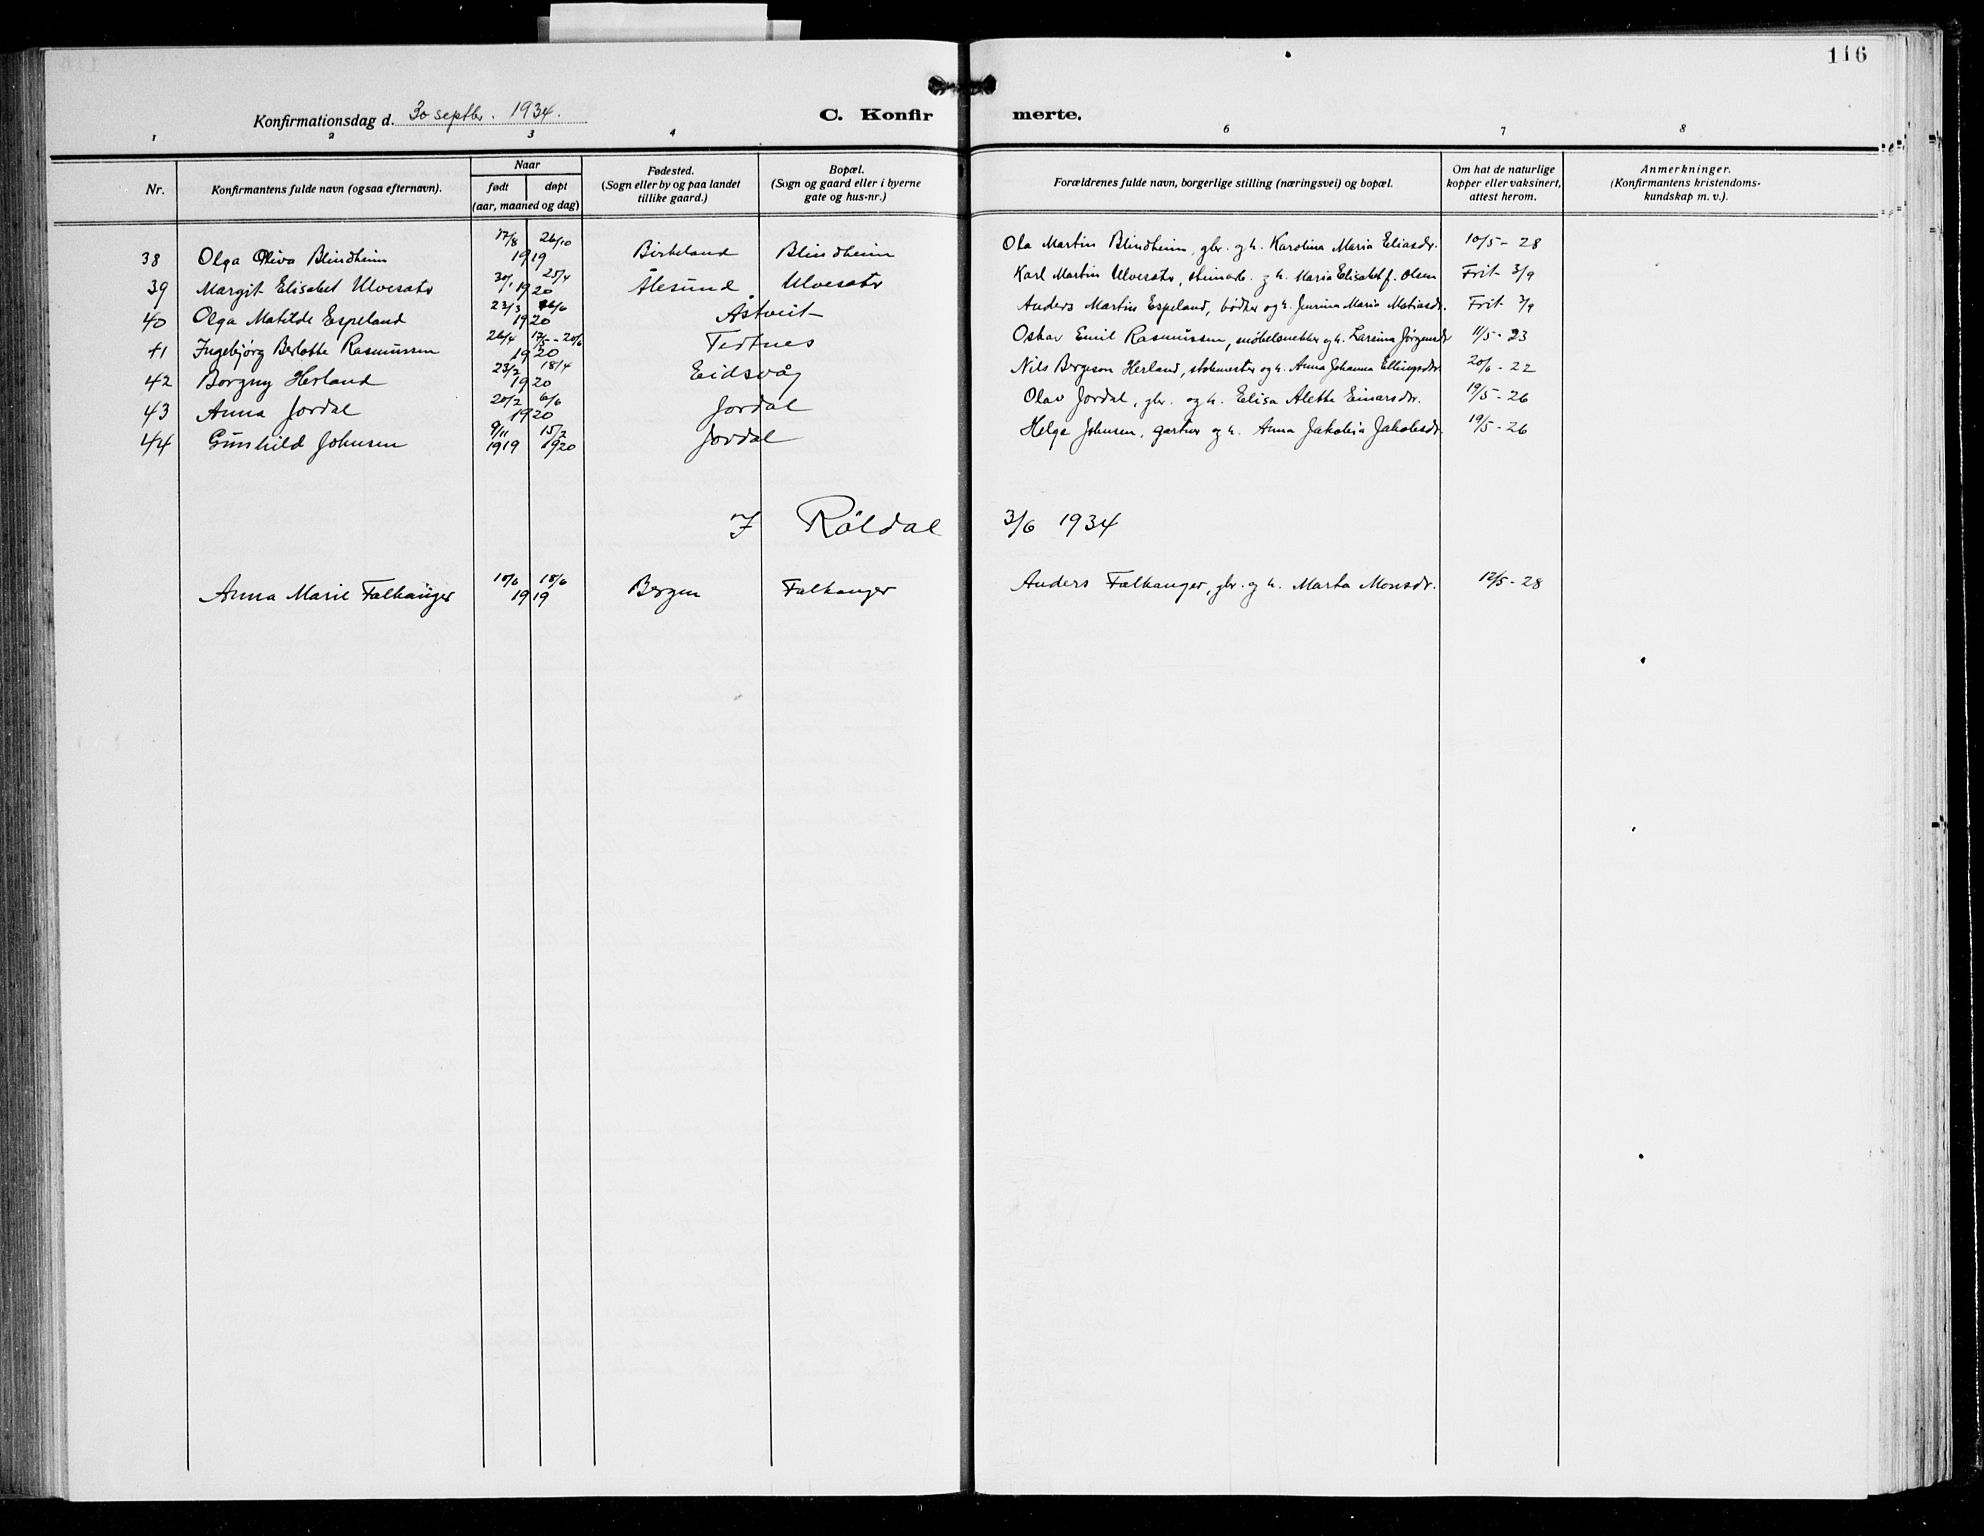 116
Konfirmationsdag d. 30 septbr. 1934.
C. Konfir merte.
1 2 3 4 6 7 8
Nr. Konfirmantens fulde navn (ogsaa efternavn). Naar født døpt (aar, maaned og dag) Fødested. (Sogn eller by og paa landet tillike gaard.) Bopæl. (Sogn og gaard eller i byerne gate og hus-nr.) Forældrenes fulde navn, borgerlige stilling (næringsvei) og bopæl. Om hat de naturlige kopper eller vaksinert, attest herom. Anmerkninger. (Konfirmantens kristendoms-kundskap m. v.).
38 Olga Oliva Blindheim 17/8 26/10 1919 Birkeland Blindheim Ola Martin Blindheim, gbr. og h. Karolina Maria Eliasdr. 10/5 - 28
39 Margit Elisabet Ulvesæter 30/1 25/4 1920 Ålesund Ulvesæter Karl Martin Ulvesæter, steinarb. og h. Maria Elisabet f. Olsen Frit 3/9
40 Olga Matilde Espeland 23/3 26/6 1920 Åstveit Anders Martin Espeland, bødker og h. Jensina Maria Matiasdr. Frit 3/9
41 Ingebjørg Berlotte Rasmussen 26/4 17/5 - 20/6 1920 Tertnes Oskar Emil Rasmussen, møbelsnekker og h. Larsina Jørgensdr 11/5 - 23
42 Borgny Herland 23/2 18/4 1920 Eidsvåg Nils Bergeson Herland, stokmester og h. Anna Johanna Ellingsdtr. 20/6 - 22
43 Anna Jordal 20/2 6/6 1920 Jordal Olav Jordal, gbr. og h. Elisa Alette Einarsdr. 19/5 - 26
44 Gunhild Johnsen 9/11 1919 15/2 1920 Jordal Helge Johnsen, gartner og h. Anna Jakobia Jakobsdr. 19/5 - 26
I Röldal 3/6 1934
Anna Marie Falkanger 10/6 18/6 1919 Bergen Falkanger Anders Falkanger, gbr. og h. Marta Monsdr. 12/5 - 28